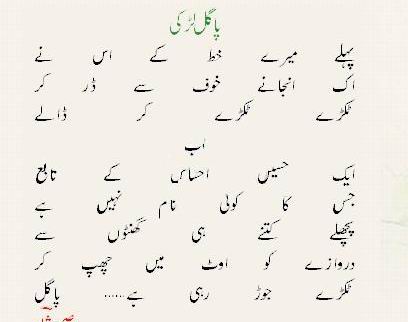 پاگل لڑکی
پہلے میرے خط کے اس نے
اک انجانے خوف سے ڈر کر
ٹکڑے ٹکڑے کر ڈالے
اب
ایک حسیں احساس کے تابع
جس کا کوئی نام نہیں ہے
پچھلے کتنے ہی گھنٹوں سے
دروازے کو اوٹ میں چھپ کر
ٹکڑے جوڑ رہی ہے...... پاگل